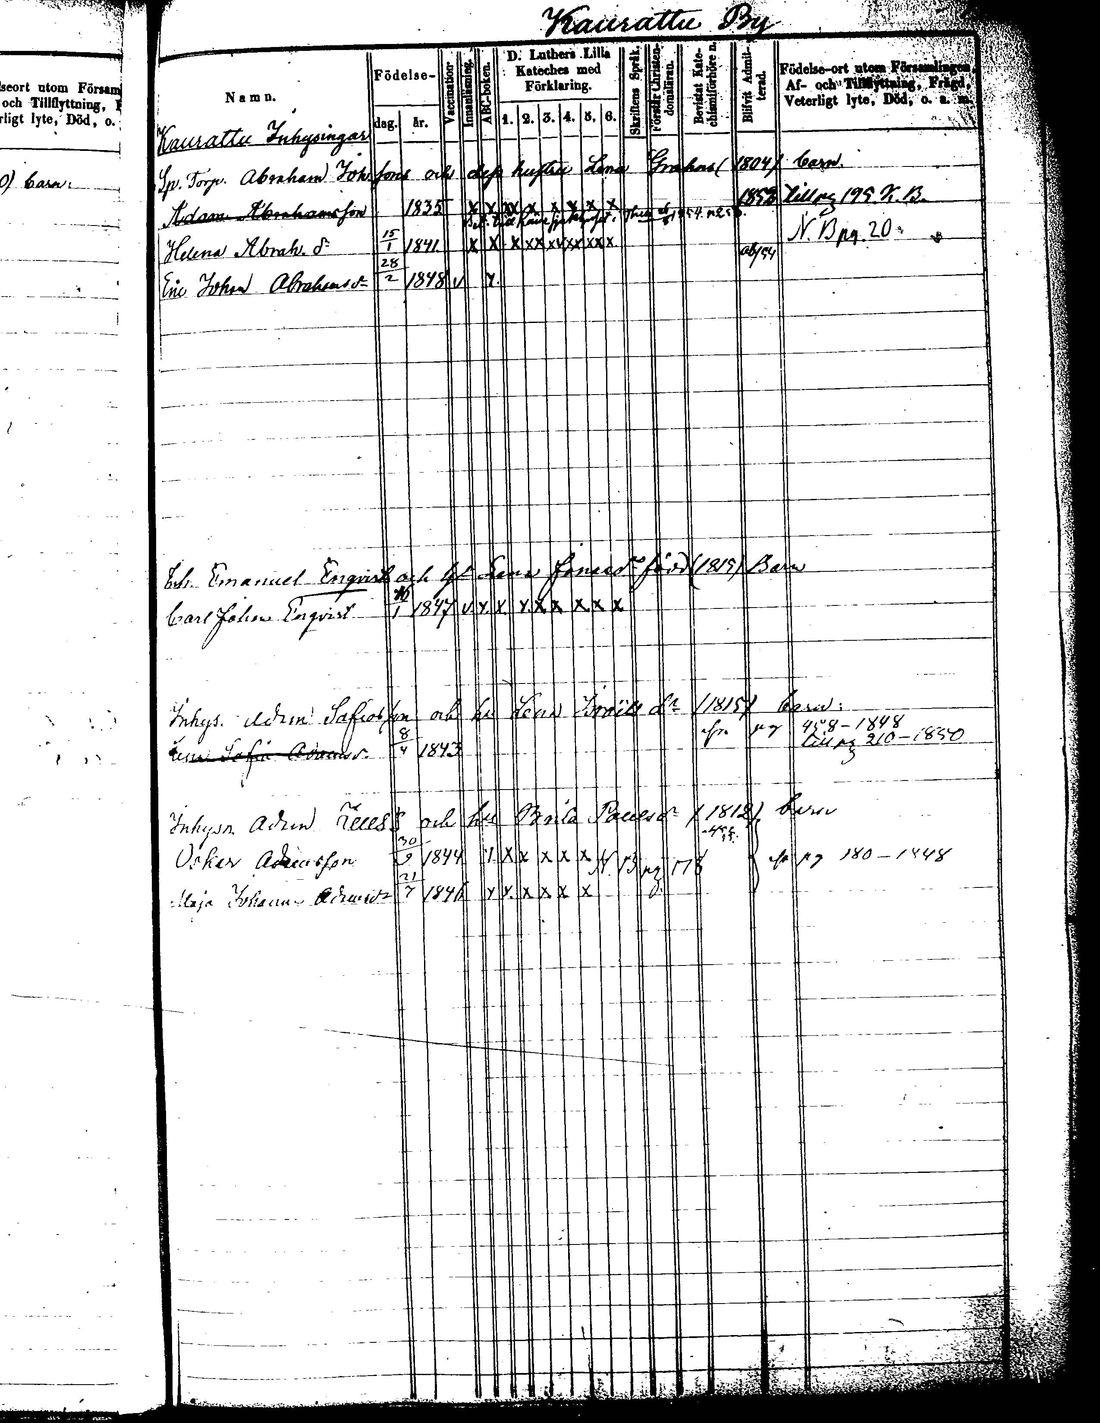 Kaurattu By
seort utom Försam
och Tillflyttning, F
rligt lyte, Död, o.
0) barn:
Namn.
Födelse-
dag.
år.
Vaccination
Innanläsning.
ABC-boken.
D. Luthers Lilla
Kateches med
Förklaring.
1. 2. 3. 4. 5. 6.
Skriftens Språk.
Förstår Christen-
domsläran.
Bevistat Kate-
chismiförhören.
Blifvit Admit-
terad.
Födelse-ort utom Församlingen,
Af- och Tillflyttning, Frägd,
Veterligt lyte, Död, o. a. m.
Kaurattu Inhysingar
Sp. Torp. Abraham Joh fons och dess hustru Lena (1804) barn.
Adam Abrahamsson 1835 x x xx x x x x x 1852 till pg 195 K.B.
N. B pg. 20
Helena Abrah. d:r 15/1 1841 x x x xx xx xx xxx
Eric Johan Abrahams 28/2 1848 v x
Emanuel Enqvist och h Lena Jonasd:r född (1819) Barn
Carl Johan Enqvist 1 1847 v x x x x x x x x
Inhys. Adam Safiosson och hu Lena d:r (1815) barn:
fr pg 458-1848
till pg 210-1850
Safia Adamsd. 8/4 1843
Inhysn Adam och hu Brita Paulsd (1812) barn
Oskar Adamsson 30/9 1844 1 x x x x x N. B pg 178 fr pg 180-1848
Maja Johanna Adamsd:r 21/7 1846 x x x x x x